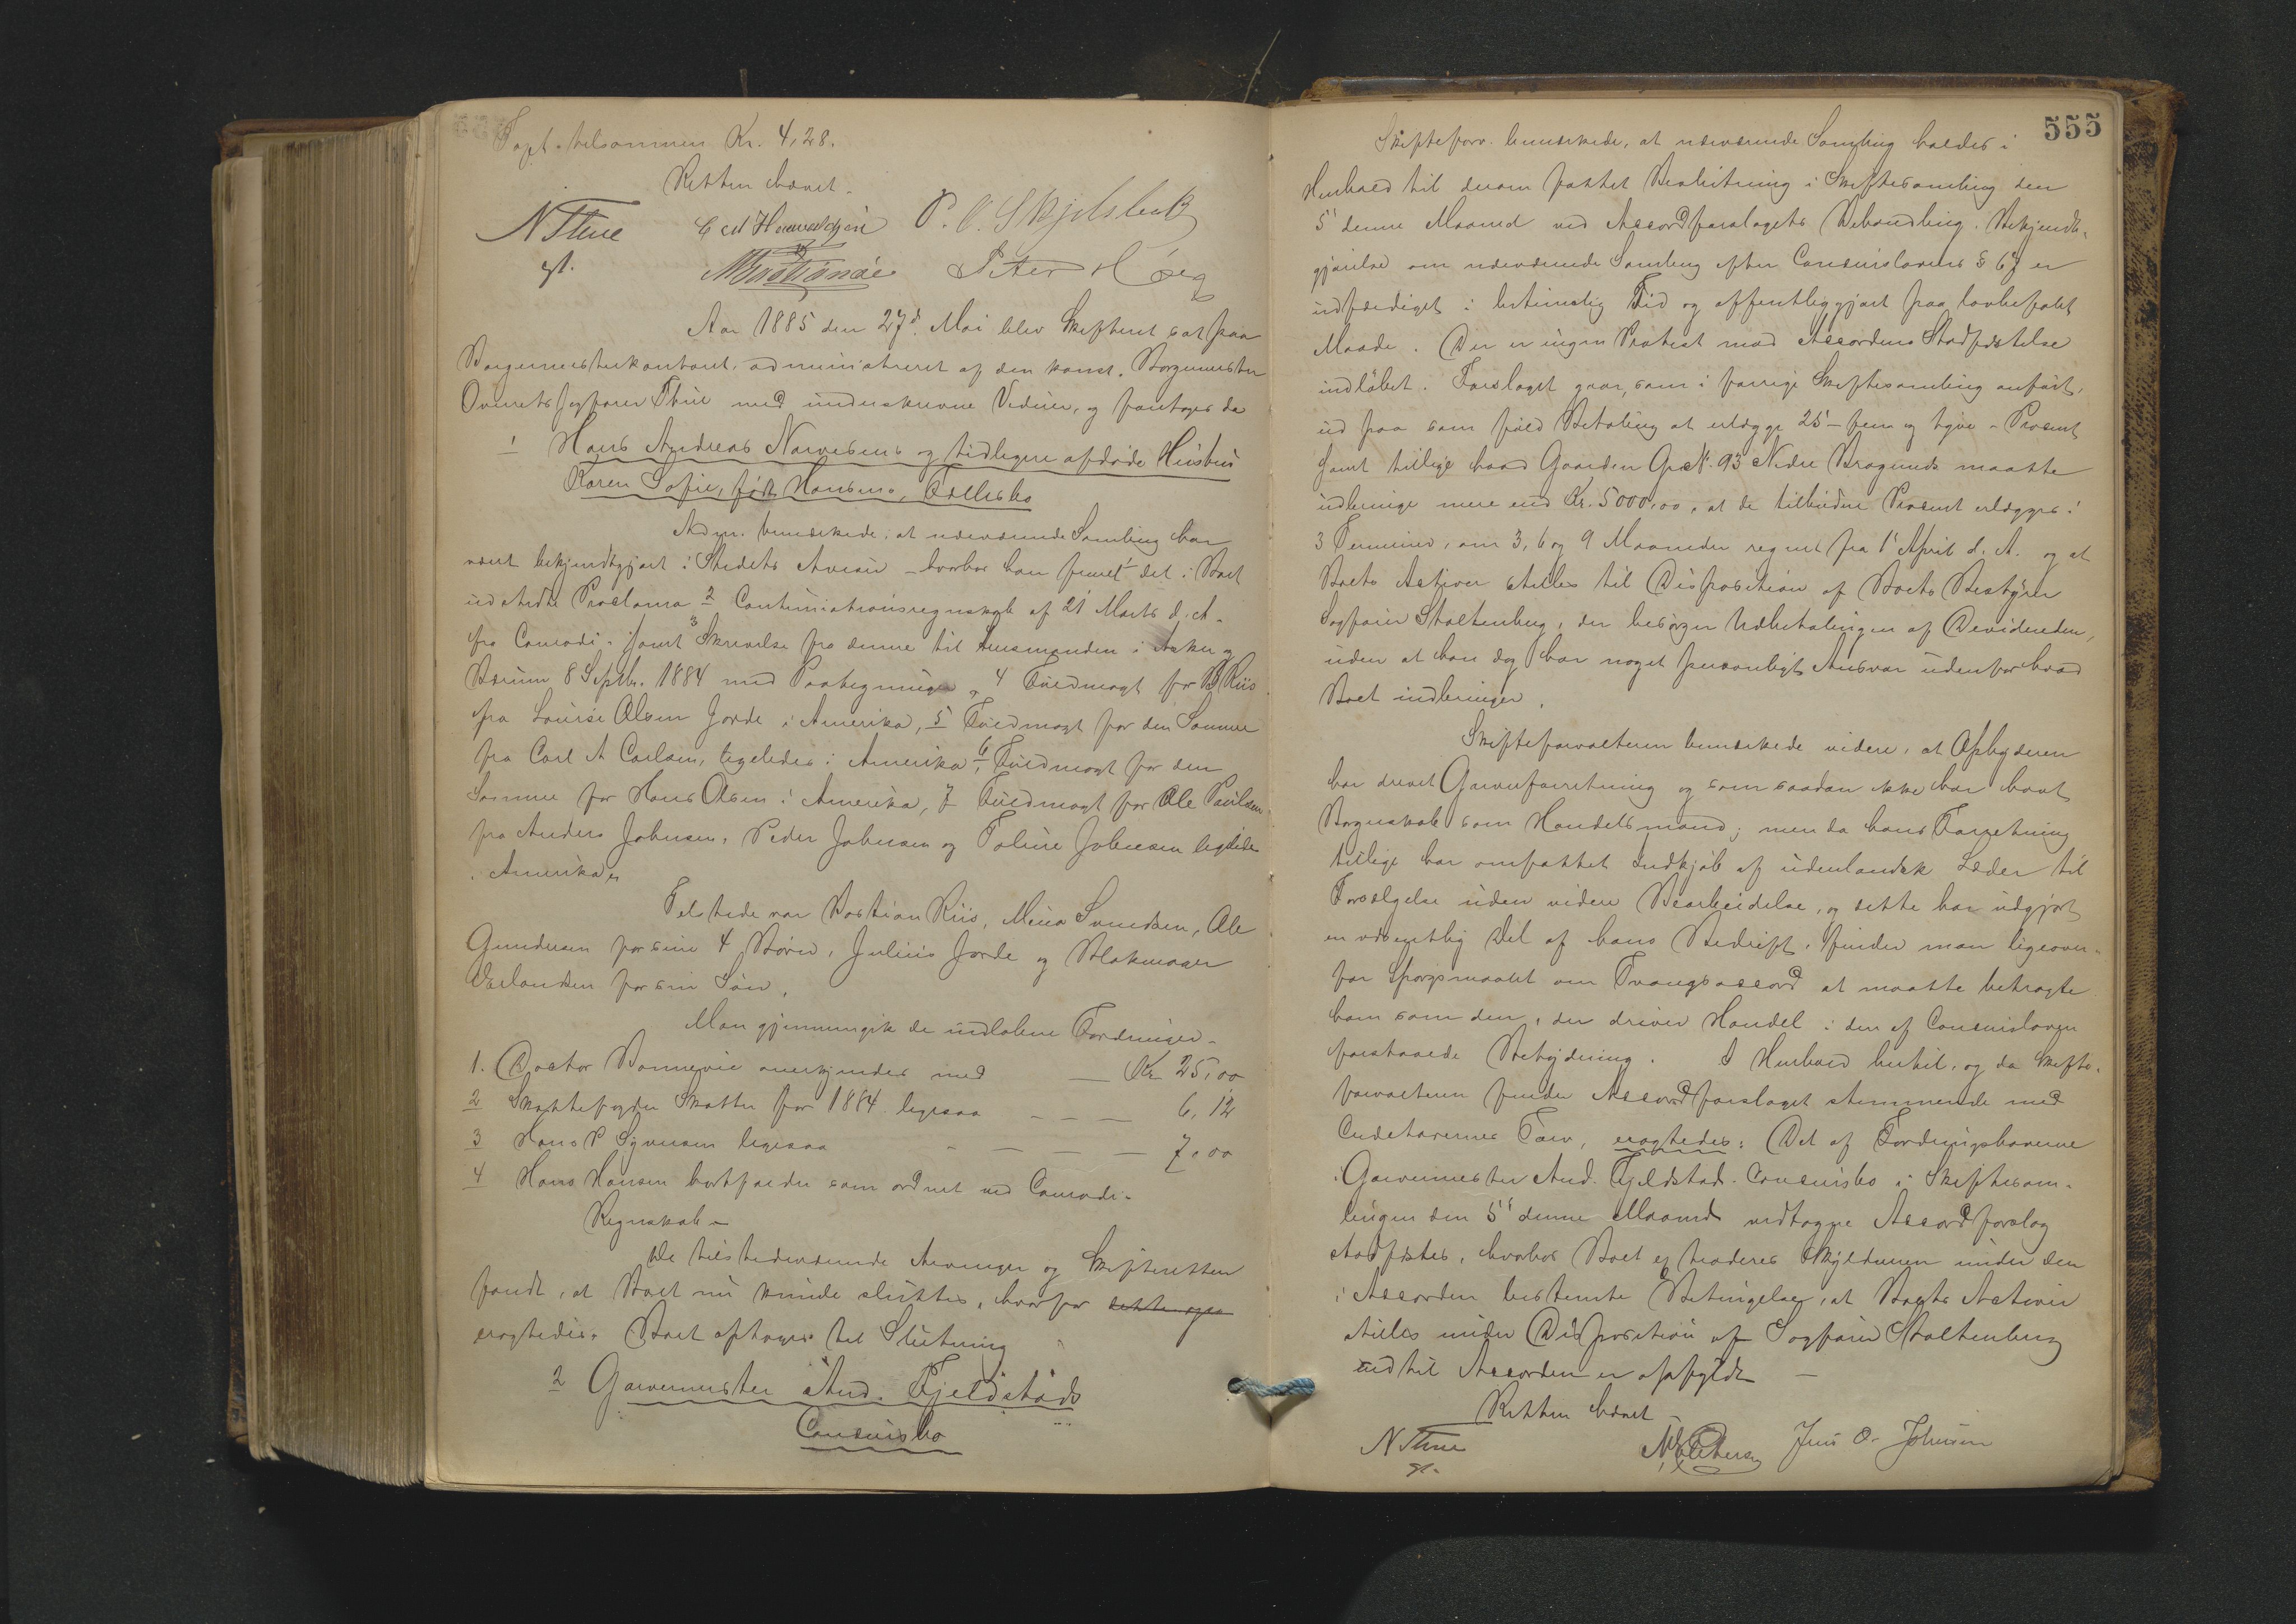 Tapt. tilsammen Kr. 4,28.
Retten hævet.
N Thue
gt.
P. O. Skjelsbek
Peter Høeg
Aar 1885 den 27d Mai blev Skifteret sat paa
Borgermesterkontoret, administreret af den const. Borgermester
Overretssagfører Thue med underskrevne Vidner, og foretoges da
1 Hans Andreas Narvesens og tidligere afdøde Hustru
Karen Sofie, født Hansens, Fællesbo
Adm. bemærkede, at nærværende Samling har
været bekjendtgjort i Stedets Aviser – hvorhos han fremlagde 1 det i Boet
udstedte Proclama 2 Continuationsregnskab af 21 Marts d. A.
fra Conradi – samt 3 Skrivelse fra denne til Lensmanden i Asker og
Bærum 8 Septbr. 1884 med Paategning, 4 Fuldmagt for B Riis
fra Louise Olsen Jorde i Amerika, 5 Fuldmagt for den Samme
fra Carl A Carlsen, ligeledes i Amerika, 6 Fuldmagt for den
Samme for Hans Olsen i Amerika, 7 Fuldmagt for Ole Paulsen
fra Anders Johnsen, Peder Johnsen og Toline Johnsen ligeledes
i Amerika
Tilstede var Bastian Riis, Mina Svendsen, Ole
Gundersen for sine 4 Børn, Julius Jorde og Blokmager
for sin Søn,
Man gjennemgik de indløbne Fordringer.
1. Doctor Bonnevie anerkjendes med – Kr 25,00
2 Skattefogden Skatter for 1884 ligesaa – – – 6,12
3 Hans P Syversen ligesaa – – – – 7,00
4 Hans Hansen bortfalder som ordnet ved Conradi
Regnskab –
De tilstedeværende Arvinger og Skifteretten
fandt, at Boet nu kunde sluttes, hvorfor
eragtedes: Boet optages til Slutning
2 Garvermester And. Fjeldstads
Concursbo
555
Skifteforv. bemærkede, at nærværende Samling holdes i
Henhold til derom fattet Beslutning i Skiftesamling den
5' denne Maaned ved Accordforslagets Behandling. Bekjendt-
gjørelse om nærværende Samling efter Concurslovens § 67 er
udfærdiget i betimelig Tid og offentliggjort paa lovbefalet
Maade. Der er ingen Protest mod Accordens Stadfæstelse
indløbet. Forslaget gaar, som i forrige Skiftesamling anført,
ud paa som fuld Betaling at erlægge 25 – fem og tyve – Procent
samt tillige hvad Gaarden Gr. N. 93 Nedre Bragernæs maatte
indbringe mere end Kr. 5000,00, at de tilbudne Procent erlægges i
3 Terminer, om 3, 6 og 9 Maaneder regnet fra 1' April d. A. og at
Boets Activer stilles til Disposition af Boets Bestyrer
Sagfører Stoltenberg, der besørger Udbetalingen af Dividenden,
uden at han dog har noget personligt Ansvar udenfor hvad
Boet indbringer.
Skifteforvalteren bemærkede videre, at Opbyderen
har drevet Garverforretning og som saadan ikke har havt
Borgerskab som Handelsmand; men da hans Forretning
tillige har omfattet Indkjøb af udenlandsk Læder til
Forsælgelse uden videre Bearbeidelse, og dette har udgjort
en væsentlig Del af hans Bedrift, finder man ligeover-
for Spørgsmaalet om Tvangsaccord at maatte betragte
ham som den, der driver Handel i den af Concursloven
forstaaede Betydning. I Henhold hertil, og da Skifte-
forvalteren finder Accordforslaget stemmende med
Creditorernes Tarv, eragtedes: Det af Fordringshaverne
i Garvermester And. Fjeldstads Concursbo i Skiftesam-
lingen den 5' denne Maaned vedtagne Accordforslag
stadfæstes, hvorhos Boet extraderes Skyldneren under den
i Accorden bestemte Betingelse, at Boets Activer
stilles under Disposition af Sagfører Stoltenberg
indtil Accorden er opfyldt –
Retten hævet
N Thue
gt.
Jens O. Johnsen